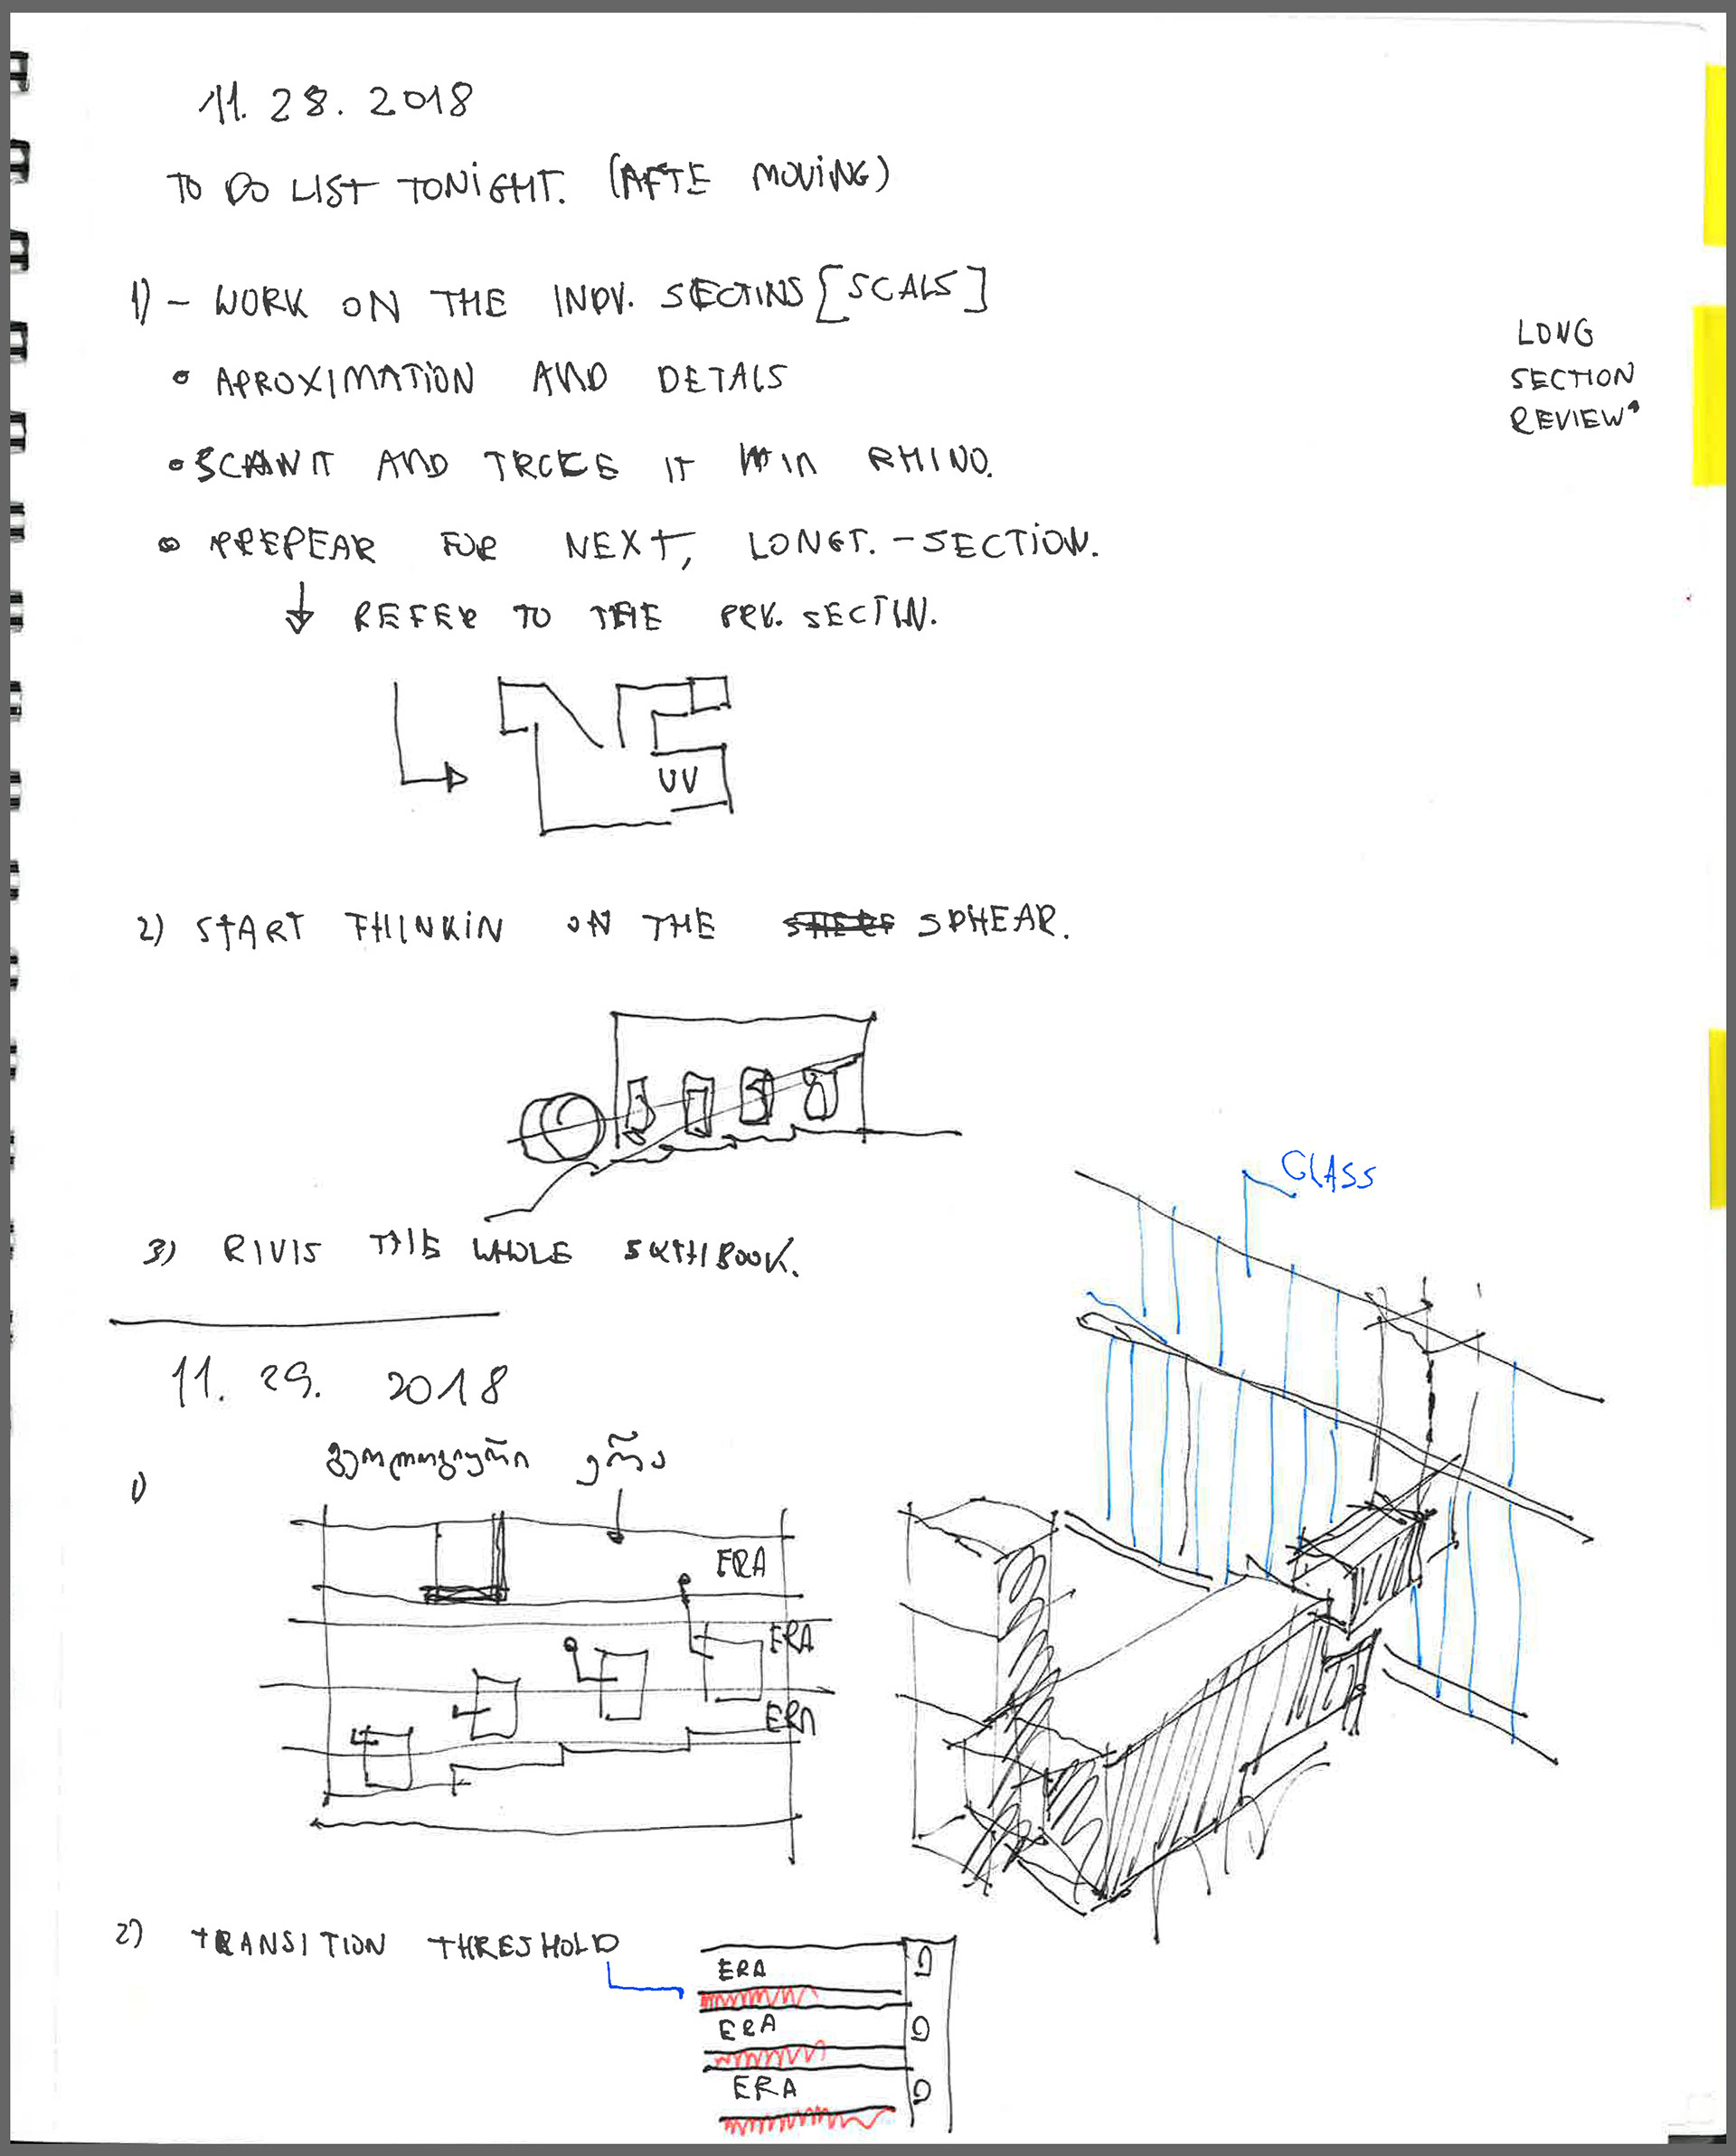 11. 28. 2018
TO DO LIST TONIGHT. (AFTE MOVING)
1) - WORK ON THE INDV. SECTINS [SCALS]
• APROXIMATION AND DETALS
• SCAN IT AND TRCCE IT IN RHINO.
• PREPEAR FOR NEXT, LONGT. - SECTION.
↓ REFER TO THE PRV. SECTIN.
LONG
SECTION
REVIEW
UV
2) START THINKIN ON THE SPHEAR.
3) RIVIS THE WHOLE SKTHBOOK.
GLASS
11. 29. 2018
გეოლოგიური ერა
1)
ERA
ERA
ERA
2) TRANSITION THRESHOLD
ERA
ERA
ERA